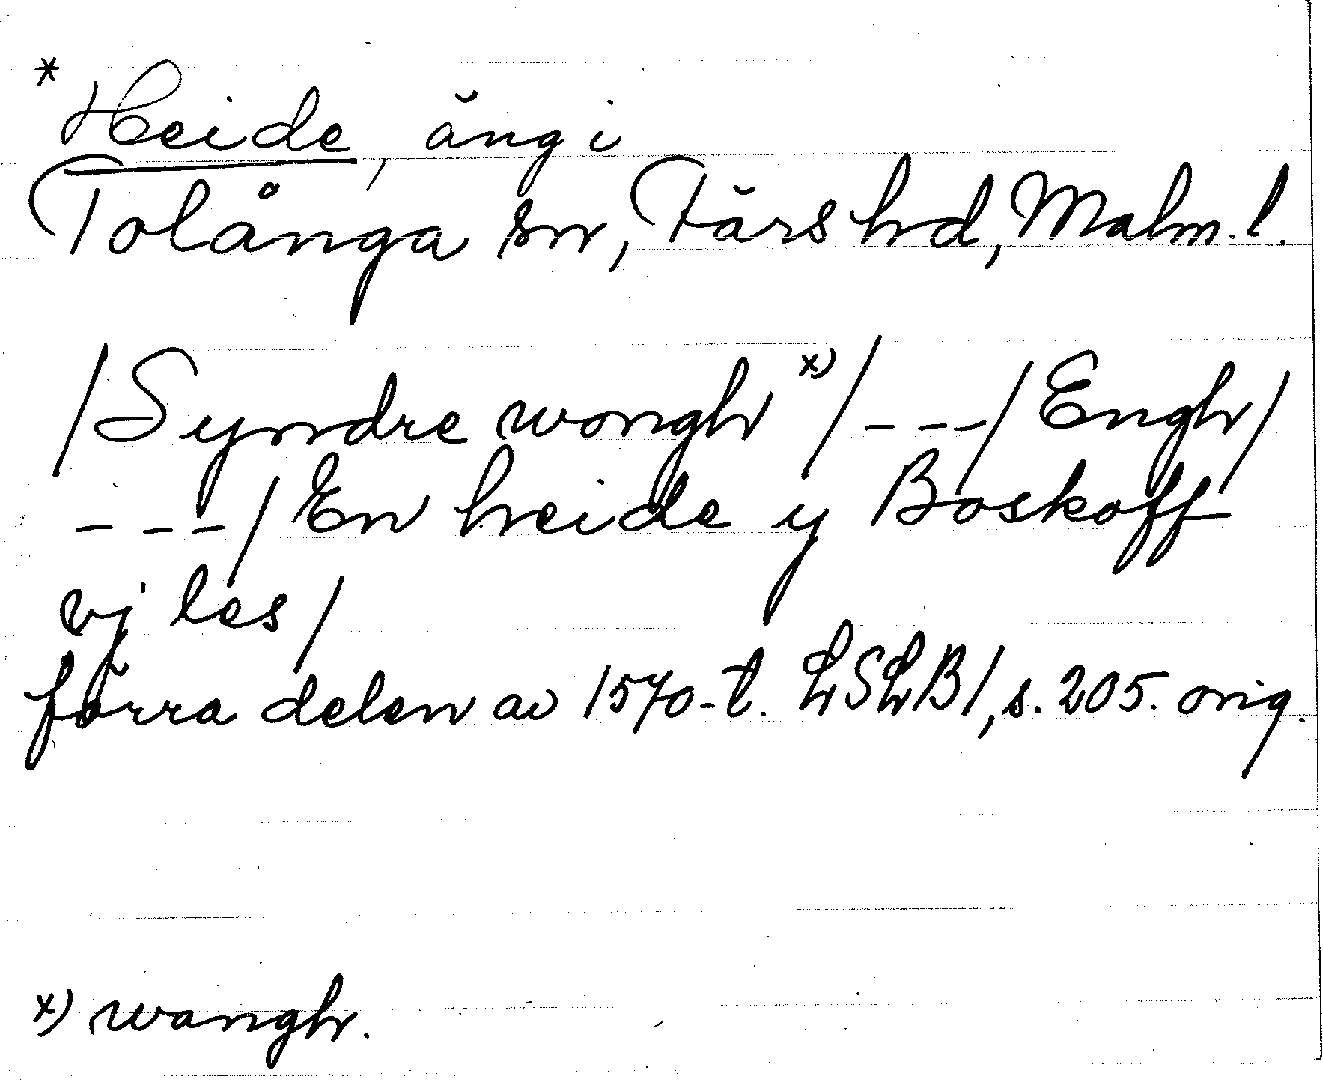 * Heide, äng i
Tolånga sn, Färs hd, Malm. l.
/Syndre wongh x)/ --- / Engh/
--- / En heide y Boskoff
vj les/
förra delen av 1570-t. LSLB 1, s. 205. orig.
x) wangh.